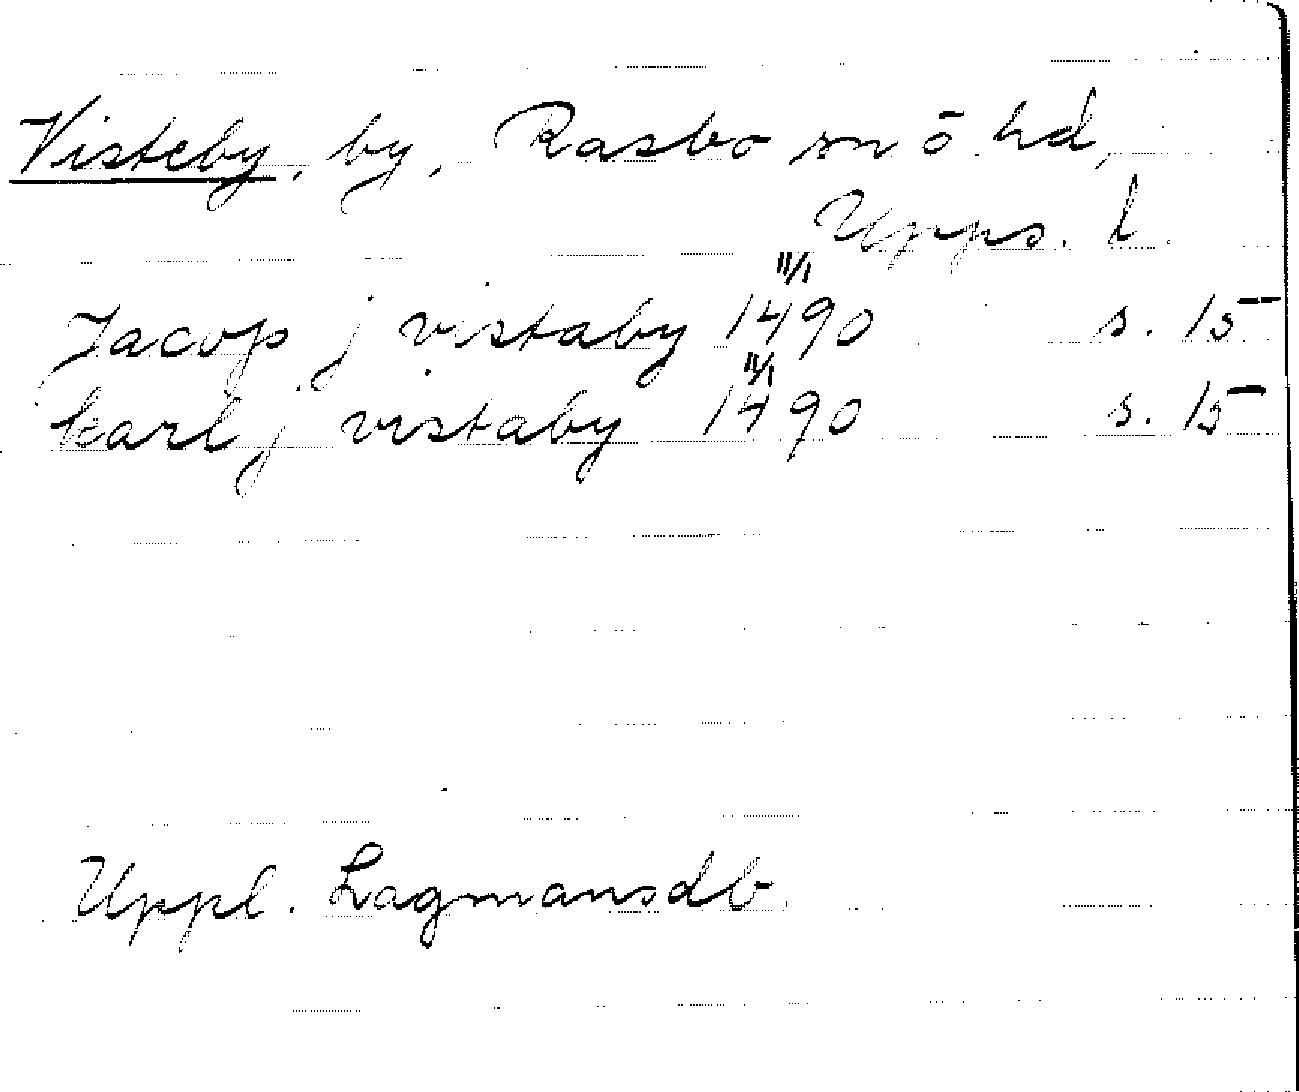 Visteby, by, Rasbo sn o hd,
Upps. l.
Jacop j vistaby 11/1 1490 s. 15
karl j vistaby 11/1 1490 s. 15
Uppl. Lagmansdb